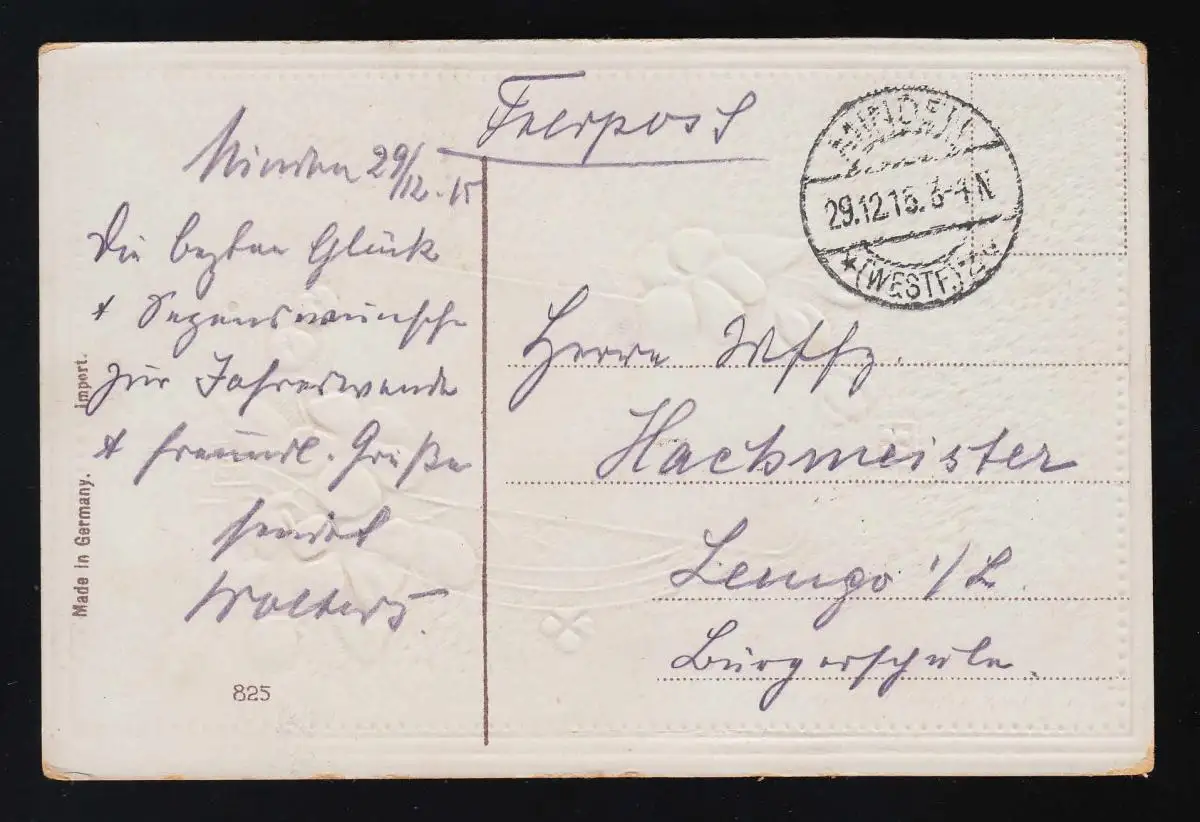 Feldpost
Minden 29/12.15
Die besten Glück
+ Segenswünsche
zur Jahreswende
+ freundl. Grüße
sendet
Wolters.
MINDEN
29.12.15. 3-4 N
★ (WESTF.)
Herrn Wffz.
Hachmeister
Lemgo i/L.
Bürgerschule.
Made in Germany. Import.
825